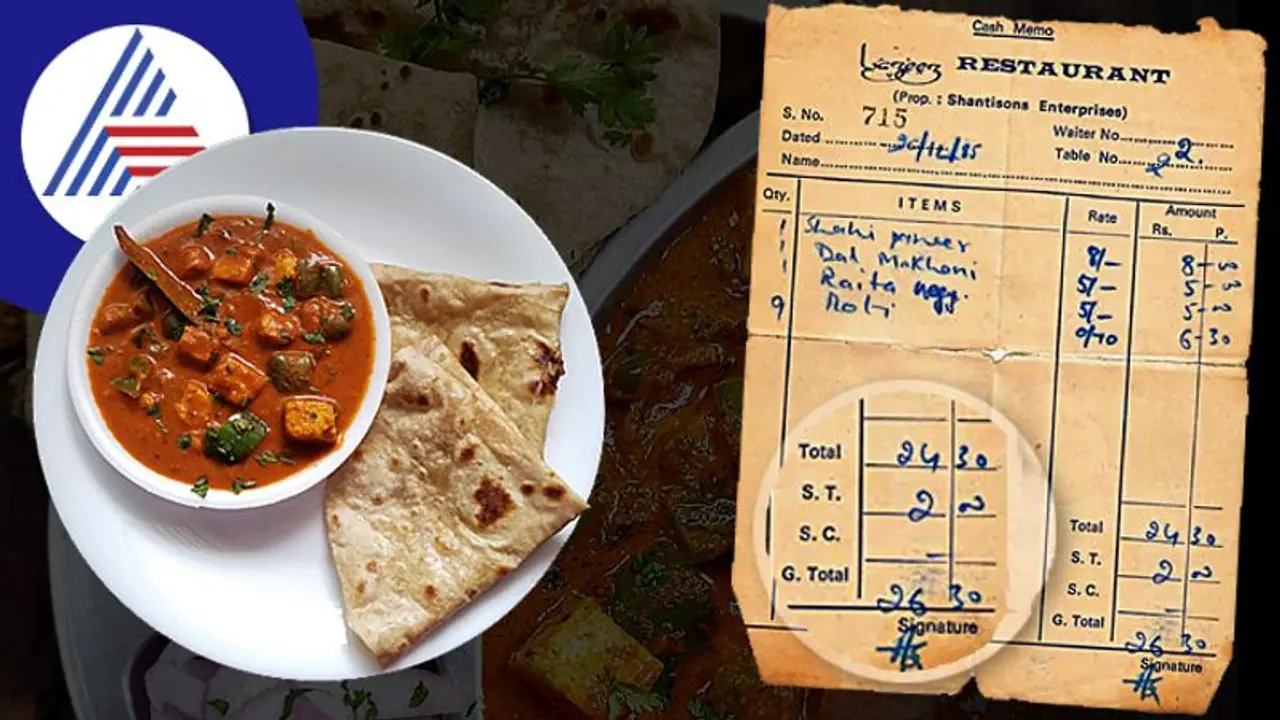 Cash Memo
Lazeez RESTAURANT
(Prop. : Shantisons Enterprises)
S. No. 715
Waiter No. 2.
Dated 20/12/85
Table No. 2
Name
Qty. ITEMS Rate Amount
Rs. P.
1 Shahi paneer 8/- 8-00
1 Dal Makhani 5/- 5-00
1 Raita 5/- 5-00
9 Roti 0/70 6-30
Total 24 30
S. T. 2 00
S. C. -
G. Total 26 30
Signature
Total 24 30
S. T. 2 00
S. C. -
G. Total 26 30
Signature